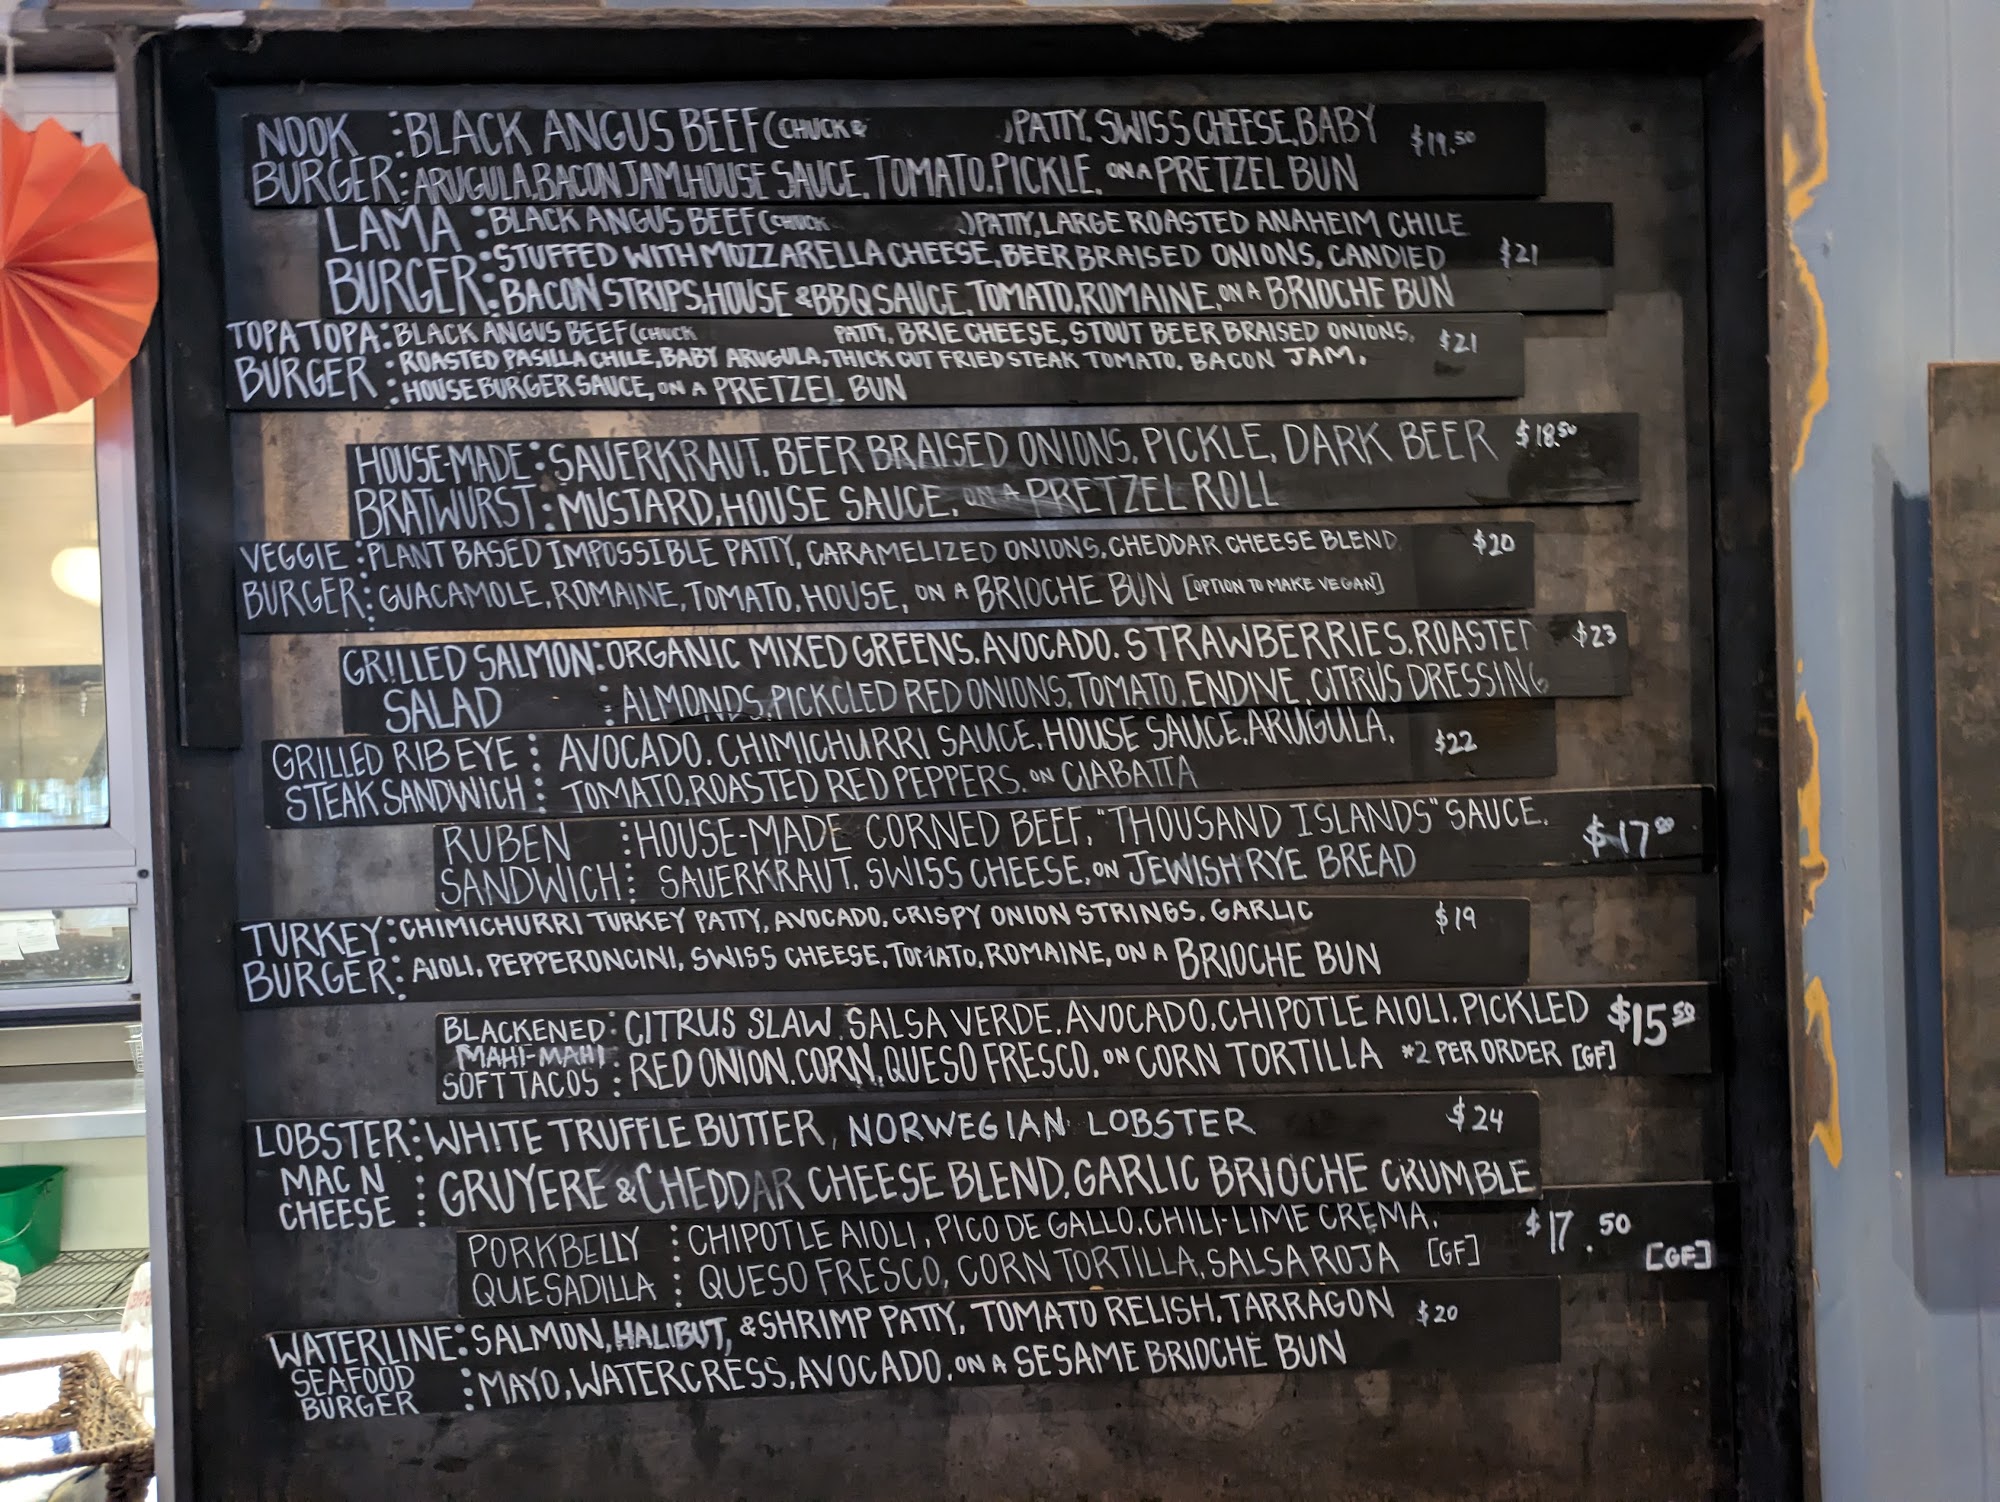 NOOK : BLACK ANGUS BEEF (CHUCK & ) PATTY, SWISS CHEESE, BABY $19.50
BURGER: ARUGULA, BACON JAM, HOUSE SAUCE, TOMATO, PICKLE, ON A PRETZEL BUN
LAMA : BLACK ANGUS BEEF (CHUCK ) PATTY, LARGE ROASTED ANAHEIM CHILE
BURGER: STUFFED WITH MOZZARELLA CHEESE, BEER BRAISED ONIONS, CANDIED $21
BACON STRIPS, HOUSE & BBQ SAUCE, TOMATO, ROMAINE, ON A BRIOCHE BUN
TOPA TOPA: BLACK ANGUS BEEF (CHUCK PATTY, BRIE CHEESE, STOUT BEER BRAISED ONIONS, $21
BURGER : ROASTED PASILLA CHILE, BABY ARUGULA, THICK CUT FRIED STEAK TOMATO, BACON JAM,
HOUSE BURGER SAUCE, ON A PRETZEL BUN
HOUSE-MADE : SAUERKRAUT, BEER BRAISED ONIONS, PICKLE, DARK BEER $18.50
BRATWURST : MUSTARD, HOUSE SAUCE, ON A PRETZEL ROLL
VEGGIE : PLANT BASED IMPOSSIBLE PATTY, CARAMELIZED ONIONS, CHEDDAR CHEESE BLEND, $20
BURGER: GUACAMOLE, ROMAINE, TOMATO, HOUSE, ON A BRIOCHE BUN [OPTION TO MAKE VEGAN]
GRILLED SALMON: ORGANIC MIXED GREENS, AVOCADO, STRAWBERRIES, ROASTED $23
SALAD : ALMONDS, PICKCLED RED ONIONS, TOMATO, ENDIVE, CITRUS DRESSING
GRILLED RIB EYE : AVOCADO, CHIMICHURRI SAUCE, HOUSE SAUCE, ARUGULA, $22
STEAK SANDWICH : TOMATO, ROASTED RED PEPPERS, ON CIABATTA
RUBEN : HOUSE-MADE CORNED BEEF, "THOUSAND ISLANDS" SAUCE, $17.00
SANDWICH : SAUERKRAUT, SWISS CHEESE, ON JEWISH RYE BREAD
TURKEY: CHIMICHURRI TURKEY PATTY, AVOCADO, CRISPY ONION STRINGS, GARLIC $19
BURGER: AIOLI, PEPPERONCINI, SWISS CHEESE, TOMATO, ROMAINE, ON A BRIOCHE BUN
BLACKENED : CITRUS SLAW SALSA VERDE, AVOCADO, CHIPOTLE AIOLI, PICKLED $15.50
MAHI-MAHI RED ONION, CORN, QUESO FRESCO, ON CORN TORTILLA *2 PER ORDER [GF]
SOFT TACOS :
LOBSTER: WHITE TRUFFLE BUTTER, NORWEGIAN LOBSTER $24
MAC N : GRUYERE & CHEDDAR CHEESE BLEND, GARLIC BRIOCHE CRUMBLE
CHEESE
PORKBELLY : CHIPOTLE AIOLI, PICO DE GALLO, CHILI-LIME CREMA, $17.50
QUESADILLA : QUESO FRESCO, CORN TORTILLA, SALSA ROJA [GF] [GF]
WATERLINE: SALMON, HALIBUT, & SHRIMP PATTY, TOMATO RELISH, TARRAGON $20
SEAFOOD : MAYO, WATERCRESS, AVOCADO, ON A SESAME BRIOCHE BUN
BURGER